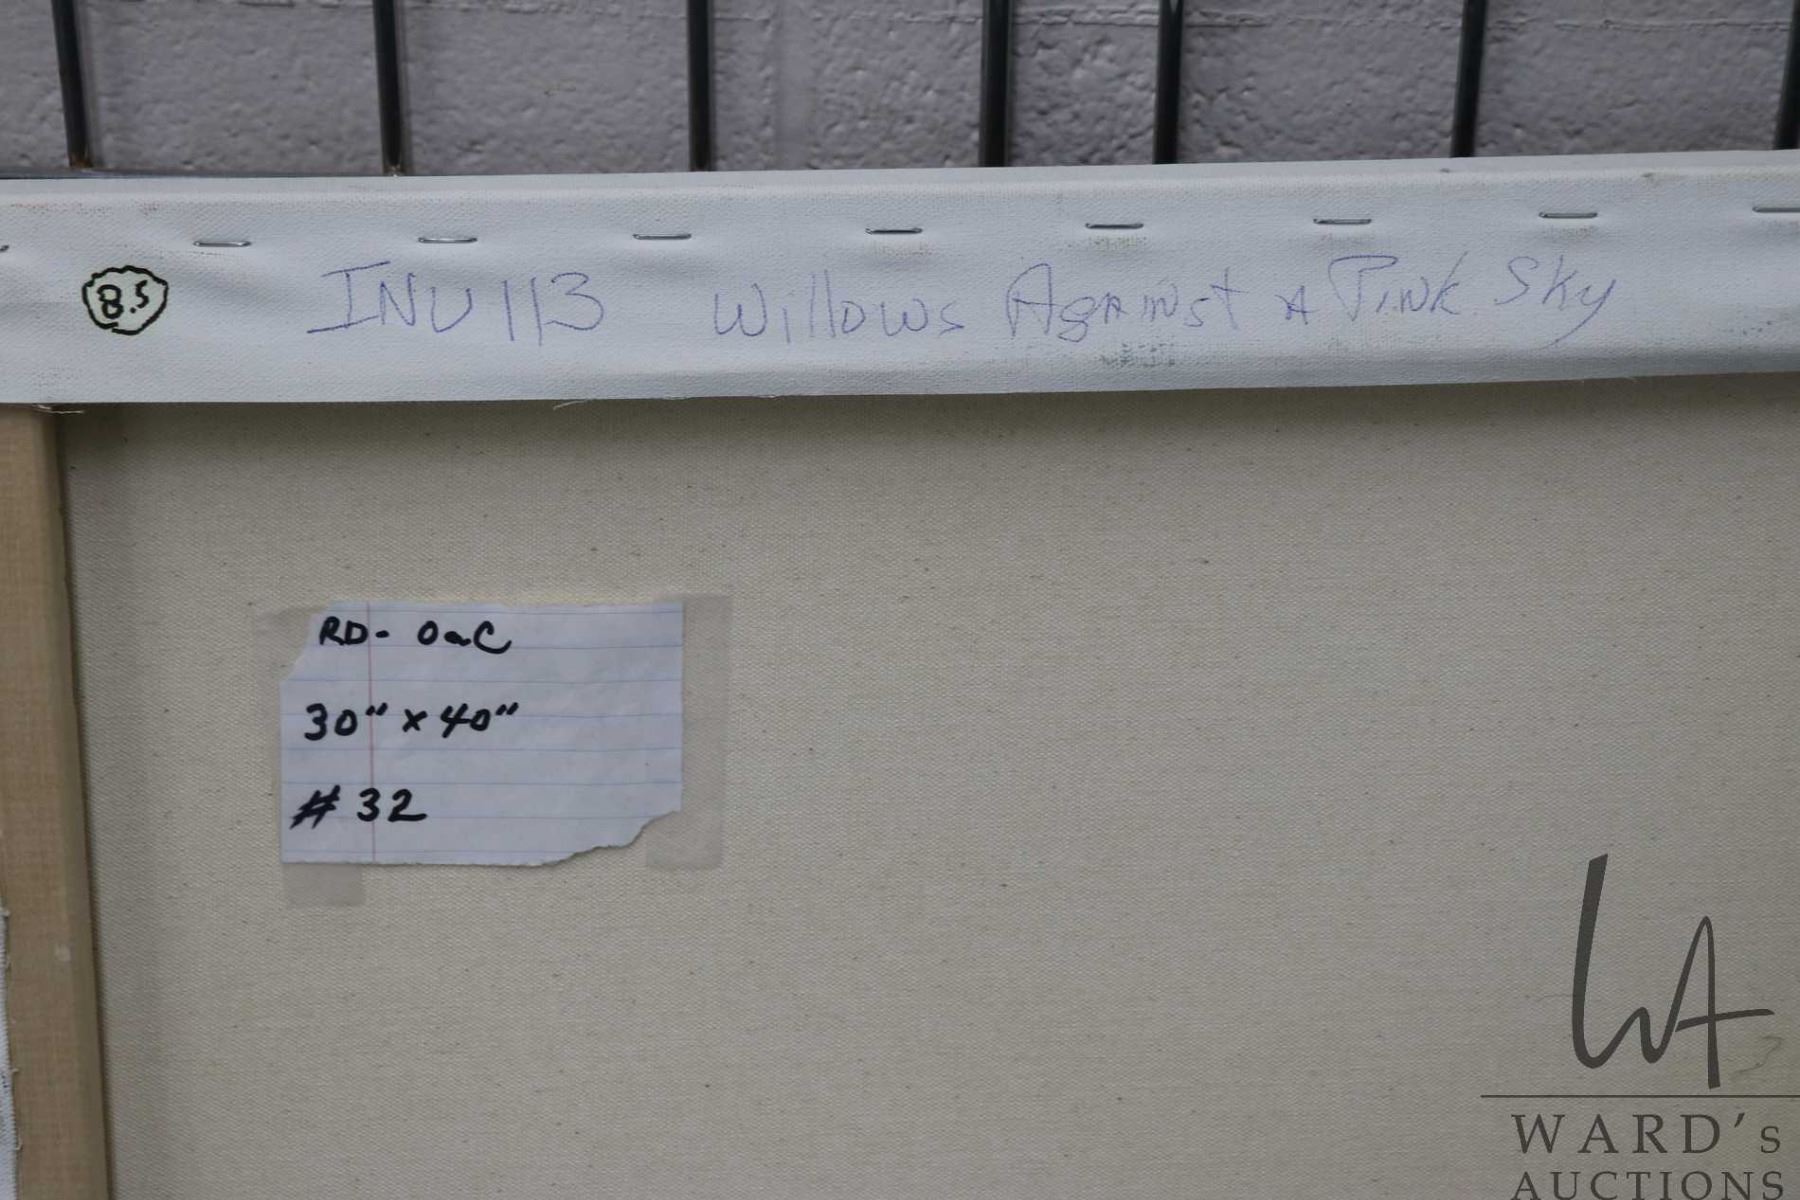 8.5 INV 113 Willows Against A Pink Sky
RD- OaC
30" x 40"
# 32
WA
WARD's
AUCTIONS